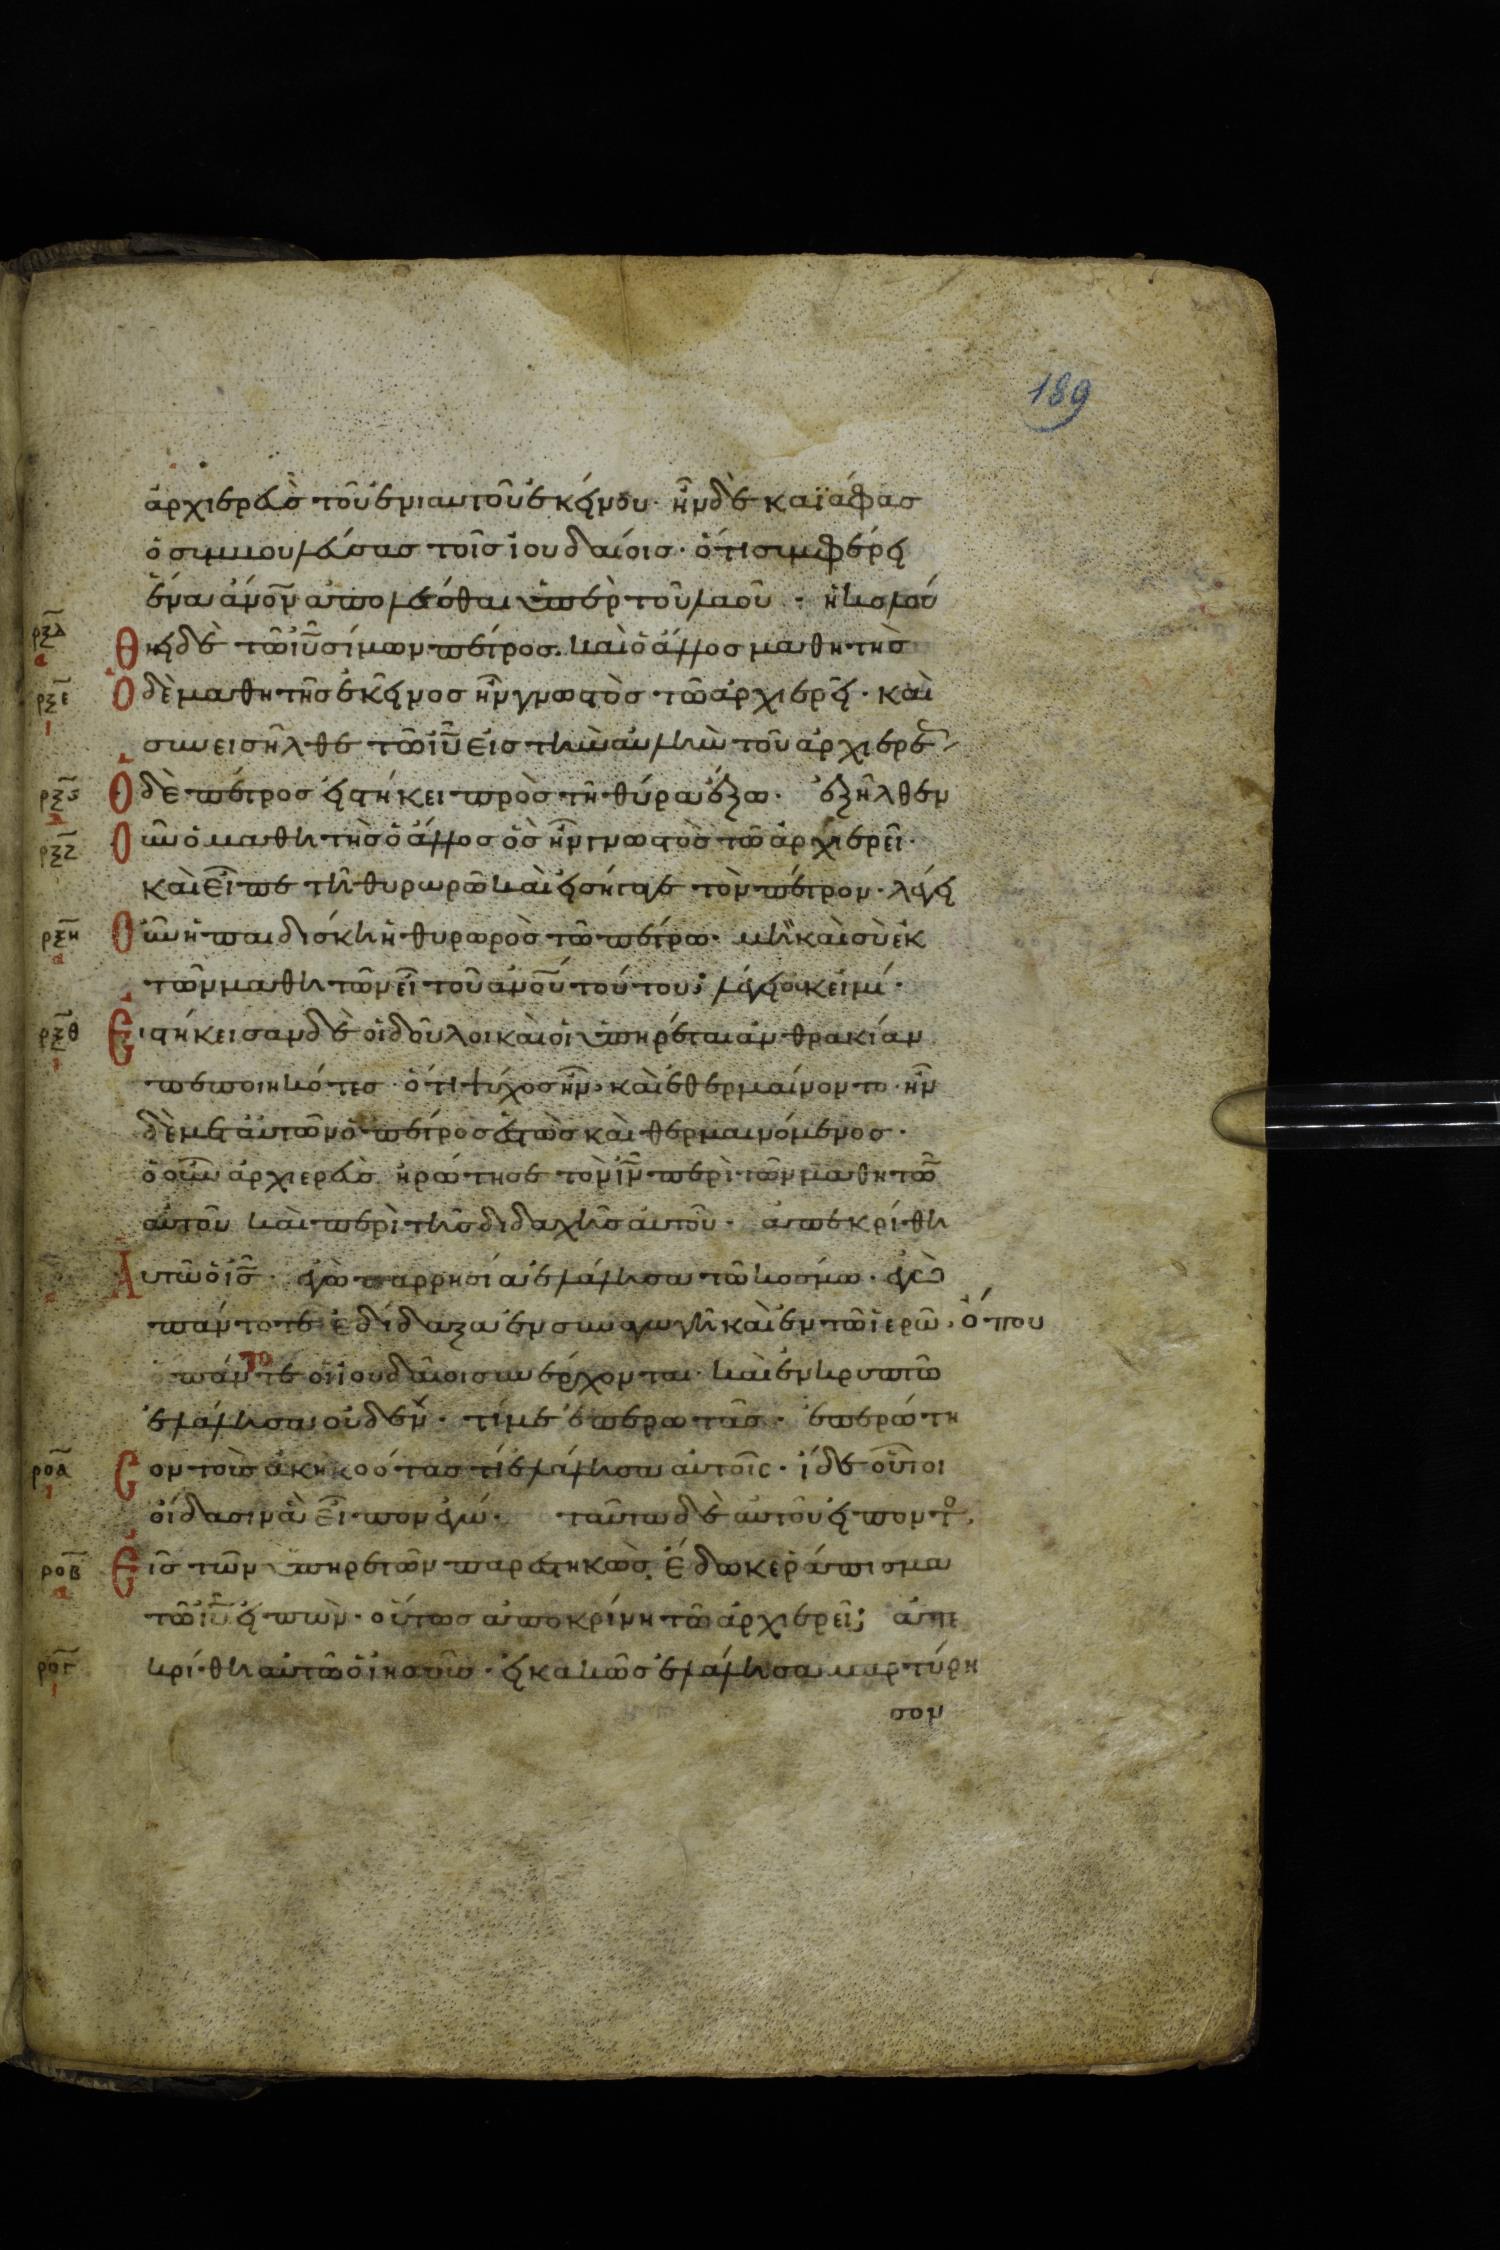 189
ἀρχιερεὺς τοῦ ἐνιαυτοῦ ἐκείνου· ἦν δὲ καϊάφας
ὁ συμβουλεύσας τοῖς ἰουδαίοις· ὅτι συμφέρει
ἕνα ἄνον ἀπολέσθαι ὑπὲρ τοῦ λαοῦ· ἠκολού
ρξδ θει δὲ τῶ ἰῦ σίμων πέτρος· καὶ ὁ ἄλλος μαθητὴς
ρξε Ο δὲ μαθητὴς ἐκεῖνος ἦν γνωστὸς τῶ ἀρχιερεῖ· καὶ
συνεισῆλθε τῶ ἰῦ εἰς τὴν αὐλὴν τοῦ ἀρχιερέ
ρξς Ο δὲ πέτρος εἱστήκει πρὸς τῆ θύρα ἔξω· ἐξῆλθεν
ρξζ Ο ῦν ὁ μαθητὴς ὁ ἄλλος ὃς ἦν γνωστὸς τῶ ἀρχιερεῖ·
καὶ εἶπε τῆ θυρωρῶ καὶ εἰσήγαγε τὸν πέτρον· λέγει
ρξη Ο ῦν ἡ παιδίσκη ἡ θυρωρὸς τῶ πέτρω· μὴ καὶ σὺ ἐκ
τῶν μαθητῶν εἶ τοῦ ἀνου τούτου; λέγει οὐκ εἰμί·
ρξθ Ειστήκεισαν δὲ οἱ δοῦλοι καὶ οἱ ὑπηρέται ἀνθρακίαν
πεποιηκότες· ὅτι ψύχος ἦν· καὶ ἐθερμαίνοντο· ἦν
δὲ μετ αὐτῶν ὁ πέτρος ἑστὼς καὶ θερμαινόμενος·
ὁ οὖν ἀρχιερεὺς ἠρώτησε τὸν ἰν περὶ τῶν μαθητῶ
αὐτοῦ καὶ περὶ τῆς διδαχῆς αὐτοῦ· ἀπεκρίθη
Αυτῶ ὁ ἰς· ἐγὼ παρρησία ἐλάλησα τῶ κόσμω· ἐγὼ
πάντοτε ἐδίδαξα ἐν συναγωγῆ καὶ ἐν τῶ ἱερῶ· ὅπου
πάντοτε οἱ ἰουδαῖοι συνέρχονται· καὶ ἐν κρυπτῶ
ἐλάλησα οὐδέν· τί με ἐπερωτᾶς· ἐπερώτη
ροα Ε ον τοὺς ἀκηκοότας τί ἐλάλησα αὐτοῖς· ἴδε οὗτοι
οἴδασιν ἃ εἶπον ἐγώ· ταῦτα δὲ αὐτοῦ εἰπόντο
ροβ Εἷς τῶν ὑπηρετῶν παρεστηκὼς ἔδωκε ῥάπισμα
τῶ ἰῦ εἰπὼν· οὕτως ἀποκρίνη τῶ ἀρχιερεῖ; ἀπε
ρογ κρίθη αὐτῶ ὁ ἰησοῦς· εἰ κακῶς ἐλάλησα μαρτύρη
σον